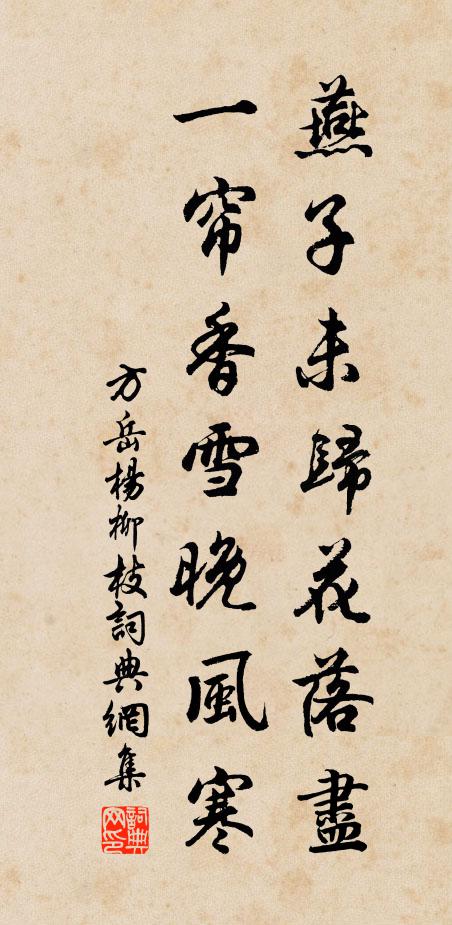 燕子未歸花落盡
一帘香雪晚風寒
方岳楊柳枝詞典網集
詞典
网印